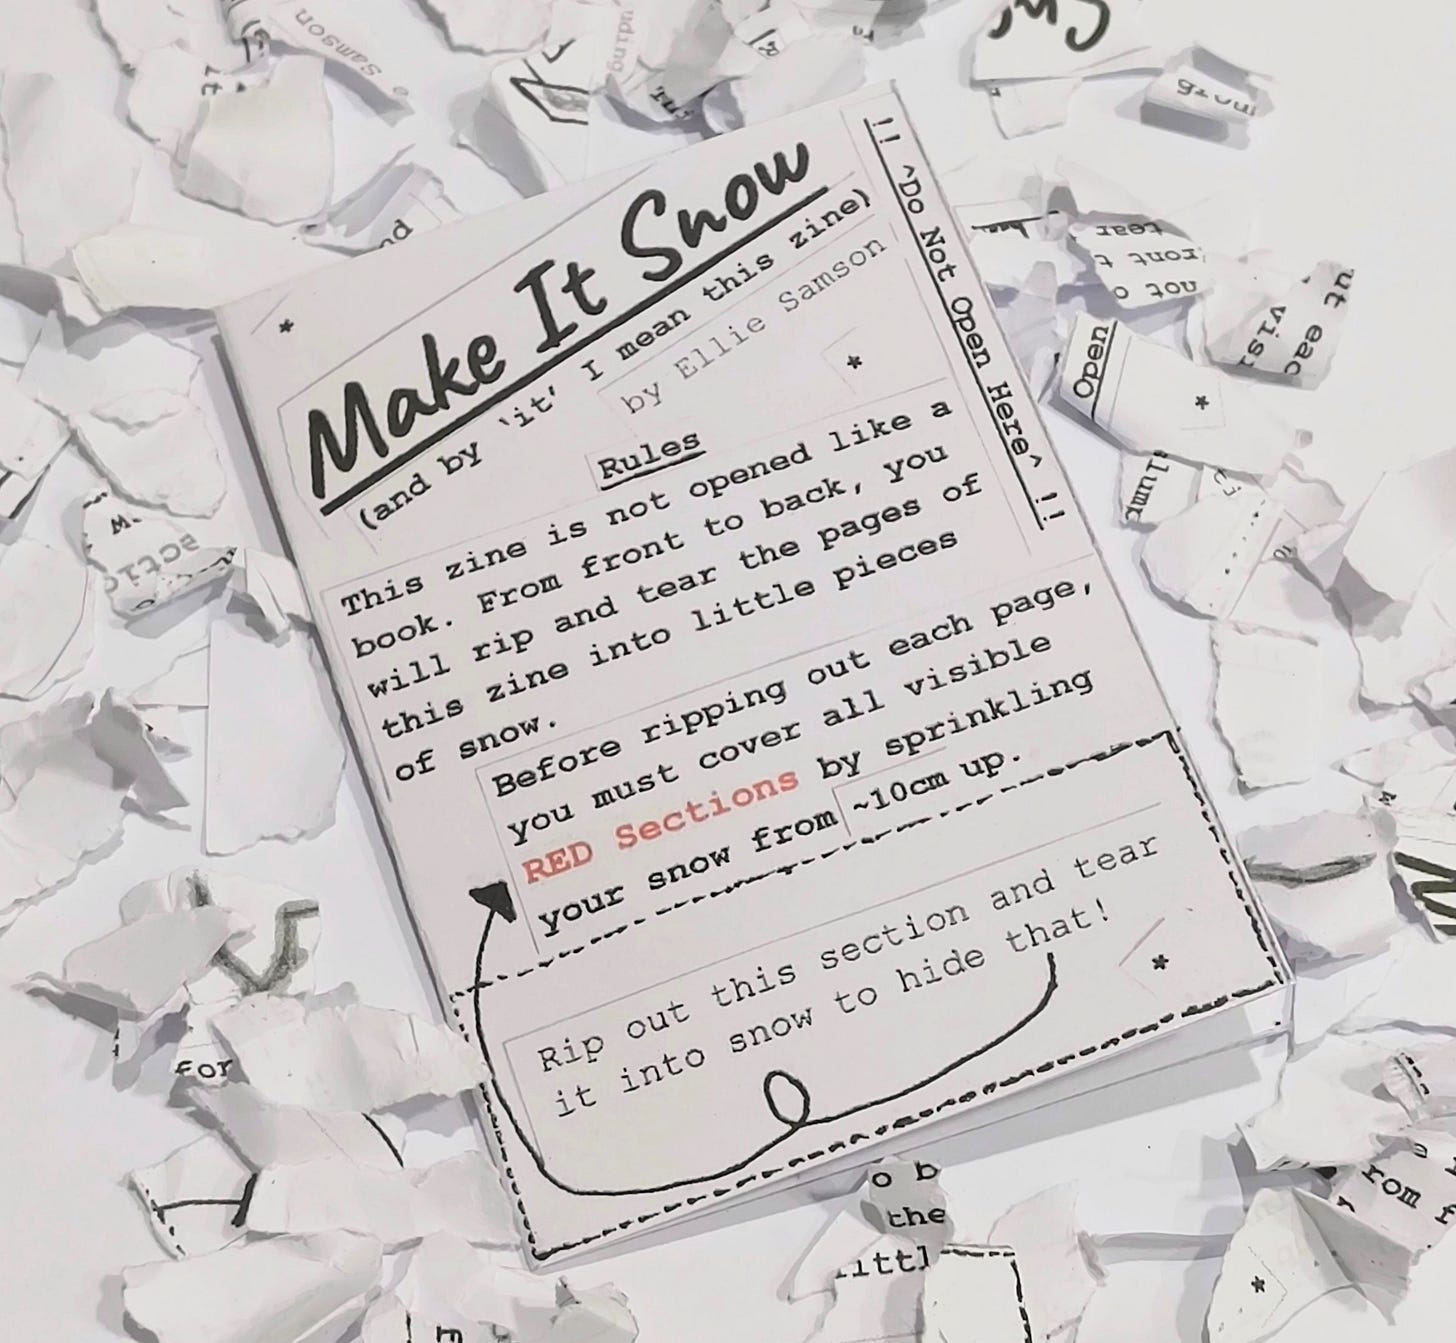 Make It Snow
(and by 'it' I mean this zine)
by Ellie Samson
!! ^Do Not Open Here^ !!
*
*
Rules
This zine is not opened like a
book. From front to back, you
will rip and tear the pages of
this zine into little pieces
of snow.
Before ripping out each page,
you must cover all visible
RED Sections by sprinkling
your snow from ~10cm up.
Rip out this section and tear
it into snow to hide that!
*
samson
nd
tear
ront t
not o
ut eac
visi
Open
*
lump
for
o b
the
ittl
rom f
*